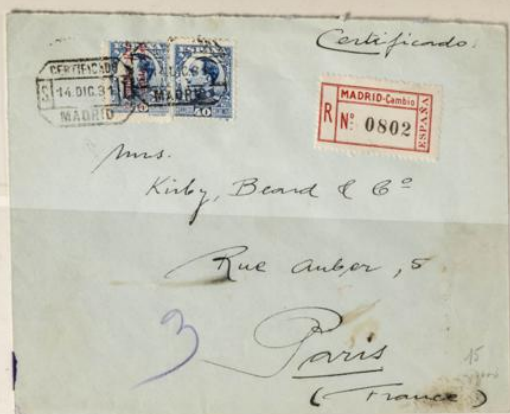 Certificado.
ESPAÑA
CERTIFICADO
S 14.DIC.31
MADRID
14.DIC.31
MADRID
40
40
MADRID-Cambio
R Nº 0802
ESPAÑA
Mrs.
Kirby, Beard & Cº
Rue Auber, 5
3
Paris
(France)
15